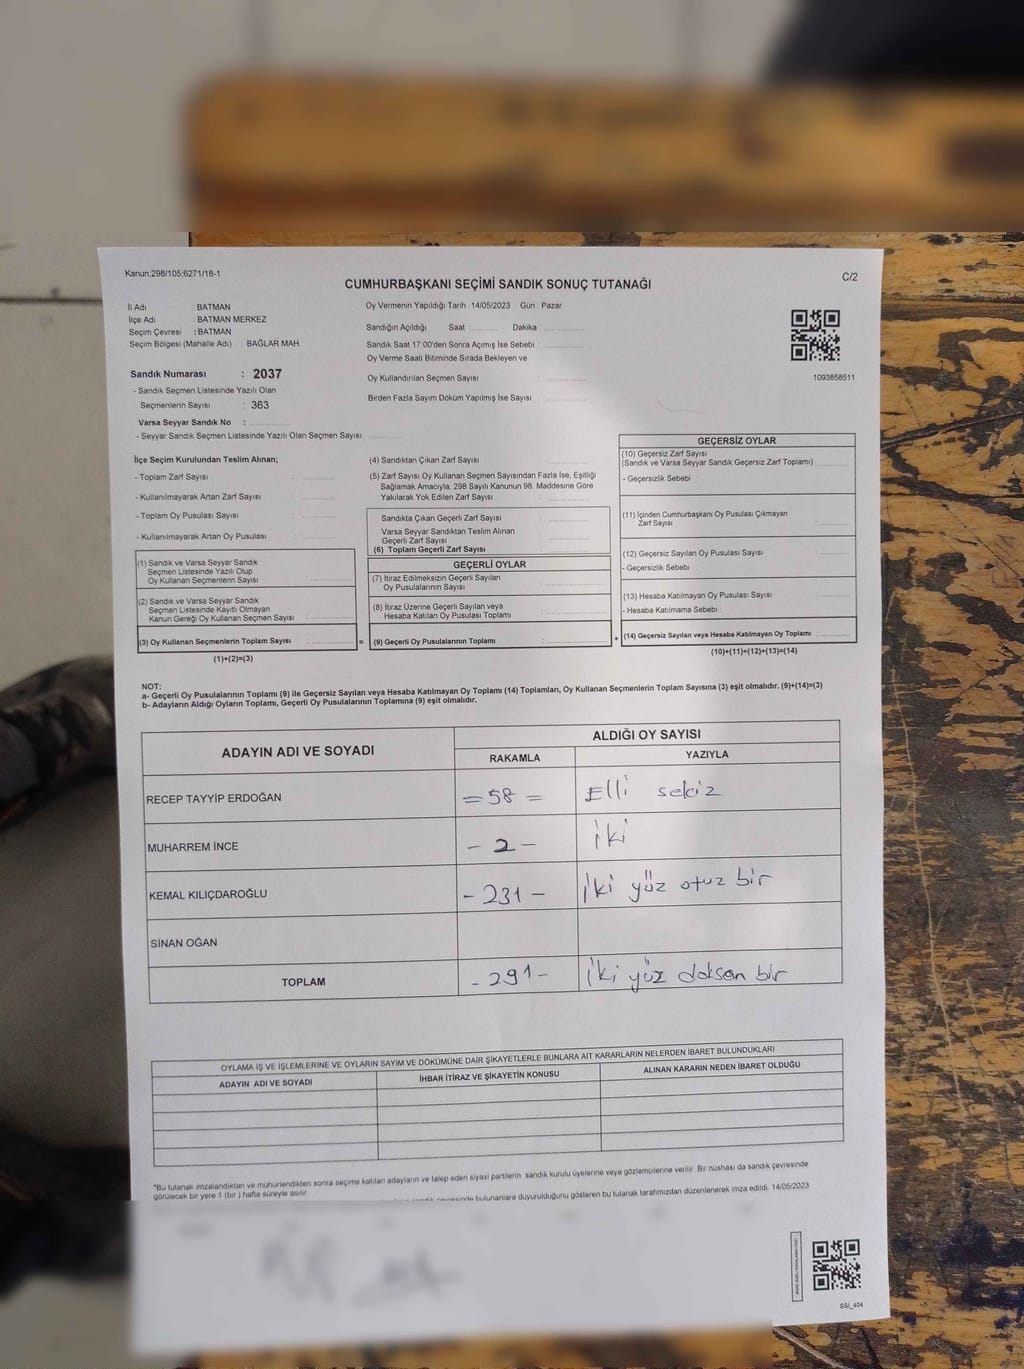 Kanun;298/105;6271/18-1
C/2
CUMHURBAŞKANI SEÇİMİ SANDIK SONUÇ TUTANAĞI
İl Adı BATMAN
İlçe Adı BATMAN MERKEZ
Seçim Çevresi : BATMAN
Seçim Bölgesi (Mahalle Adı) : BAĞLAR MAH.
Sandık Numarası : 2037
- Sandık Seçmen Listesinde Yazılı Olan
Seçmenlerin Sayısı : 363
Varsa Seyyar Sandık No :
- Seyyar Sandık Seçmen Listesinde Yazılı Olan Seçmen Sayısı
Oy Vermenin Yapıldığı Tarih : 14/05/2023 Gün : Pazar
Sandığın Açıldığı Saat Dakika :
Sandık Saat 17:00'den Sonra Açımış İse Sebebi :
Oy Verme Saati Bitiminde Sırada Bekleyen ve
Oy Kullandırılan Seçmen Sayısı :
Birden Fazla Sayım Döküm Yapılmış İse Sayısı :
1093858511
İlçe Seçim Kurulundan Teslim Alınan;
- Toplam Zarf Sayısı :
- Kullanılmayarak Artan Zarf Sayısı :
- Toplam Oy Pusulası Sayısı :
- Kullanılmayarak Artan Oy Pusulası :
(1) Sandık ve Varsa Seyyar Sandık
Seçmen Listesinde Yazılı Olup
Oy Kullanan Seçmenlerin Sayısı :
(2) Sandık ve Varsa Seyyar Sandık
Seçmen Listesinde Kayıtlı Olmayan
Kanun Gereği Oy Kullanan Seçmen Sayısı :
(3) Oy Kullanan Seçmenlerin Toplam Sayısı :
(1)+(2)=(3)
(4) Sandıktan Çıkan Zarf Sayısı :
(5) Zarf Sayısı Oy Kullanan Seçmen Sayısından Fazla İse, Eşitliği
Sağlamak Amacıyla, 298 Sayılı Kanunun 98. Maddesine Göre
Yakılarak Yok Edilen Zarf Sayısı :
Sandıkta Çıkan Geçerli Zarf Sayısı :
Varsa Seyyar Sandıktan Teslim Alınan
Geçerli Zarf Sayısı :
(6) Toplam Geçerli Zarf Sayısı :
GEÇERLİ OYLAR
(7) İtiraz Edilmeksizin Geçerli Sayılan
Oy Pusulalarının Sayısı :
(8) İtiraz Üzerine Geçerli Sayılan veya
Hesaba Katılan Oy Pusulası Toplamı :
= (9) Geçerli Oy Pusulalarının Toplamı :
GEÇERSİZ OYLAR
(10) Geçersiz Zarf Sayısı
(Sandık ve Varsa Seyyar Sandık Geçersiz Zarf Toplamı) :
- Geçersizlik Sebebi
(11) İçinden Cumhurbaşkanı Oy Pusulası Çıkmayan
Zarf Sayısı :
(12) Geçersiz Sayılan Oy Pusulası Sayısı :
- Geçersizlik Sebebi
(13) Hesaba Katılmayan Oy Pusulası Sayısı :
- Hesaba Katılmama Sebebi
+ (14) Geçersiz Sayılan veya Hesaba Katılmayan Oy Toplamı :
(10)+(11)+(12)+(13)=(14)
NOT:
a- Geçerli Oy Pusulalarının Toplamı (9) ile Geçersiz Sayılan veya Hesaba Katılmayan Oy Toplamı (14) Toplamları, Oy Kullanan Seçmenlerin Toplam Sayısına (3) eşit olmalıdır. (9)+(14)=(3)
b- Adayların Aldığı Oyların Toplamı, Geçerli Oy Pusulalarının Toplamına (9) eşit olmalıdır.
ADAYIN ADI VE SOYADI ALDIĞI OY SAYISI
RAKAMLA YAZIYLA
RECEP TAYYİP ERDOĞAN = 58 = Elli sekiz
MUHARREM İNCE - 2 - İki
KEMAL KILIÇDAROĞLU - 231 - İki yüz otuz bir
SİNAN OĞAN
TOPLAM - 291 - İki yüz doksan bir
OYLAMA İŞ VE İŞLEMLERİNE VE OYLARIN SAYIM VE DÖKÜMÜNE DAİR ŞİKAYETLERLE BUNLARA AİT KARARLARIN NELERDEN İBARET BULUNDUKLARI
ADAYIN ADI VE SOYADI İHBAR İTİRAZ VE ŞİKAYETİN KONUSU ALINAN KARARIN NEDEN İBARET OLDUĞU
*Bu tutanak imzalandıktan ve mühürlendikten sonra seçime katılan adayların ve talep eden siyasi partilerin sandık kurulu üyelerine veya gözlemcilerine verilir. Bir nüshası da sandık çevresinde
görülecek bir yere 1 (bir) hafta süreyle asılır.
bulunanlara duyurulduğunu gösteren bu tutanak tarafımızdan düzenlenerek imza edildi. 14/05/2023
SSİ_404